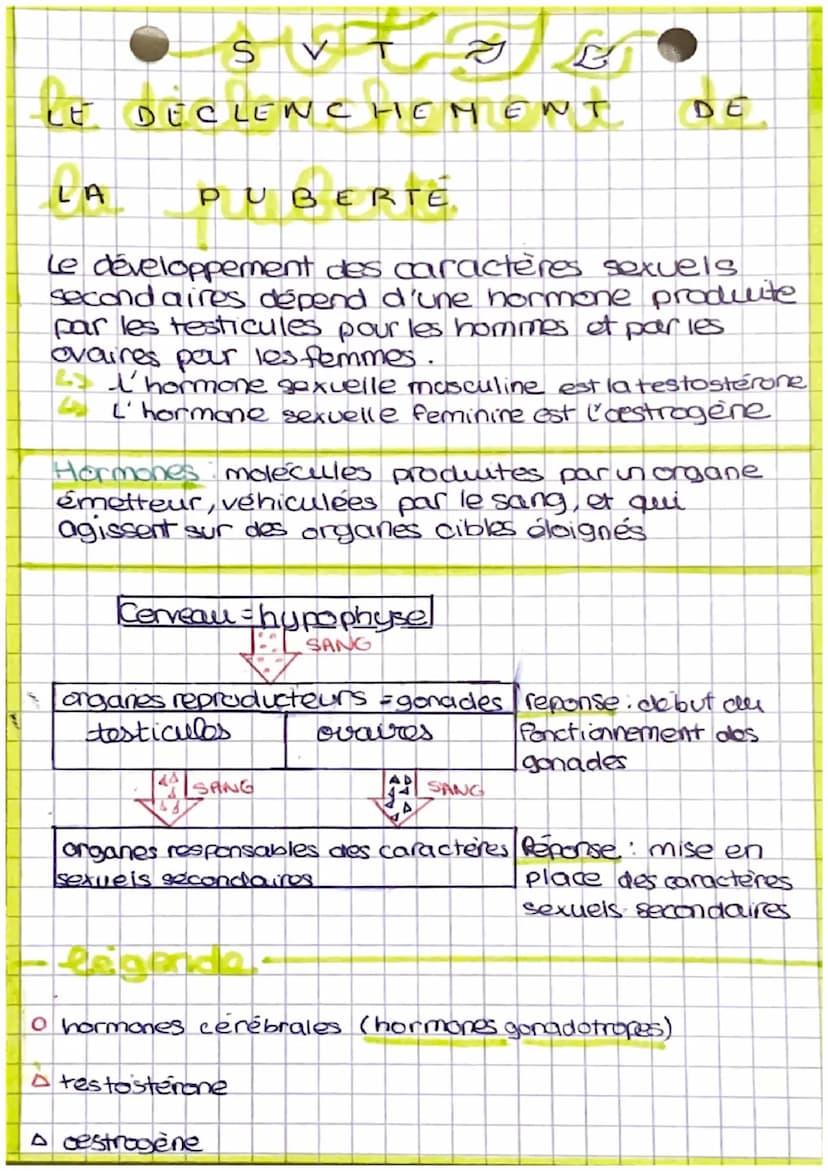 SVT
LE DÉCLENCHEMENT DE
LA PUBERTÉ
Le développement des caractères sexuels
secondaires dépend d'une hormone produite
par les testicules pour les hommes et par les
ovaires pour les femmes.
L'hormone sexuelle masculine est la testostérone
L'hormone sexuelle feminine est l'œstrogène
Hormones : molécules produites par un organe
émetteur, véhiculées par le sang, et qui
agissent sur des organes cibles éloignés
Cerveau = hypophyse
SANG
organes reproducteurs = gonades
reponse : debut du
testicules ovaires
fonctionnement des
gonades
SANG SANG
organes responsables des caractères
sexuels secondaires
Réponse : mise en
place des caractères
sexuels secondaires
légende
hormones cérébrales (hormones gonadotropes)
testostérone
œstrogène